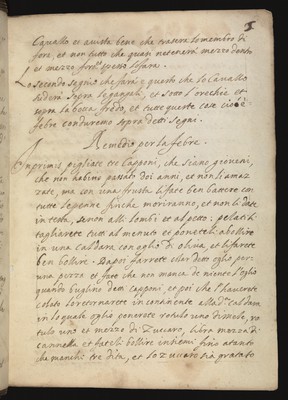 Cavallo et avista bene che trasera lo membro di
fore, et non tutto che quasi ne tenerà mezzo dentro
et mezzo fore spesso
Lo secondo segno che farà e questo che lo Cavallo
sudera sopra le garroli, et sotto l'orechie et
sopra la bocca fredo, et tutte queste cose
febre conduremo sopra detti segni.
Remedio per la febre.
In primis pigliate tre Capponi, che siano gioveni,
che non habino passato doi anni, et non li amaz-
zate, ma con una frusta li fate ben battere con
tutte le penne finche moriranno, et non li date
in testa, se non alli lombi et al petto: pelati li
tagliarete tutti al menuto et poneteli a bollire
in una Caldara con oglio di oliva, et li farete
ben bollire. Dapoi farrete che detto oglio per
una pezza et fate che non manca de niente l'oglio
quando buglino detti capponi, et poi che l'haverete
colato lo retornarete in continente alla detta Caldara,
in lo quale oglio ponerete rotulo uno di mele, ro-
tulo uno et mezzo di Zuccaro, libra mezza di
cannella et fateli bollire insiemi fino a tanto
che manchi tre dita, et lo zuccaro sia gratato